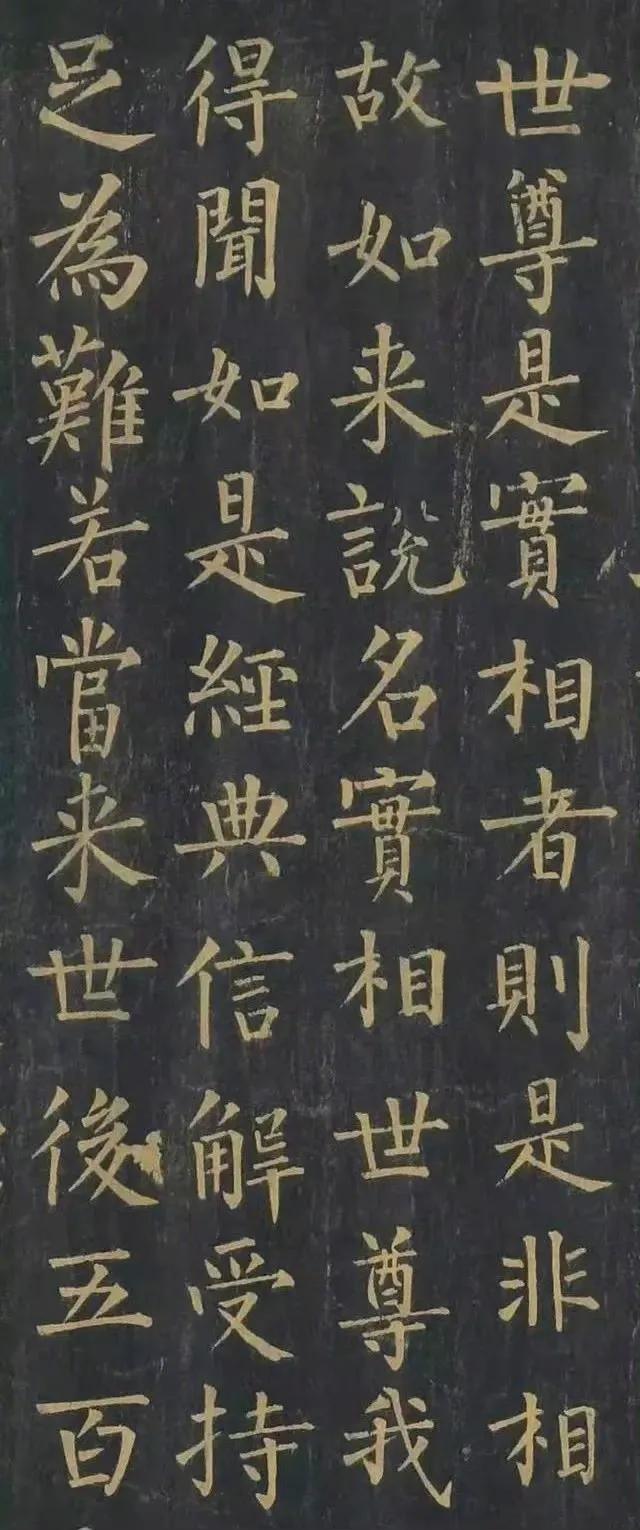 世尊是實相者則是非相
故如来說名實相世尊我
得聞如是經典信解受持
足為難若當来世後五百